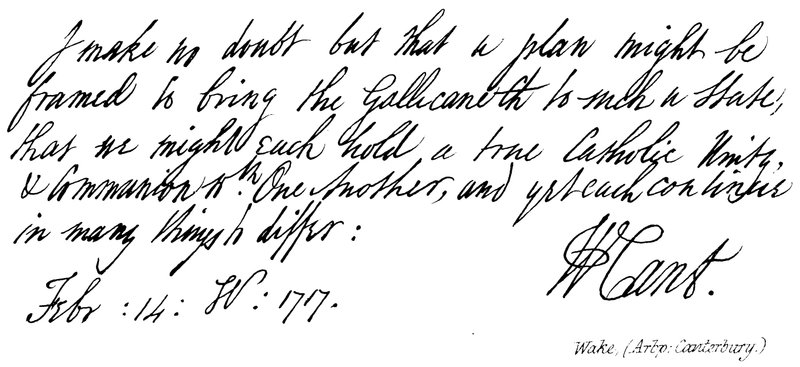 I make no doubt but that a plan might be
framed to bring the Gallicane Ch to such a State,
that we might each hold a true Catholic Unity,
& Communion wth. One Another, and yet each continue
in many things to differ:
W Cant.
Febr: 14: 1717.
Wake, (Arbp: Canterbury.)